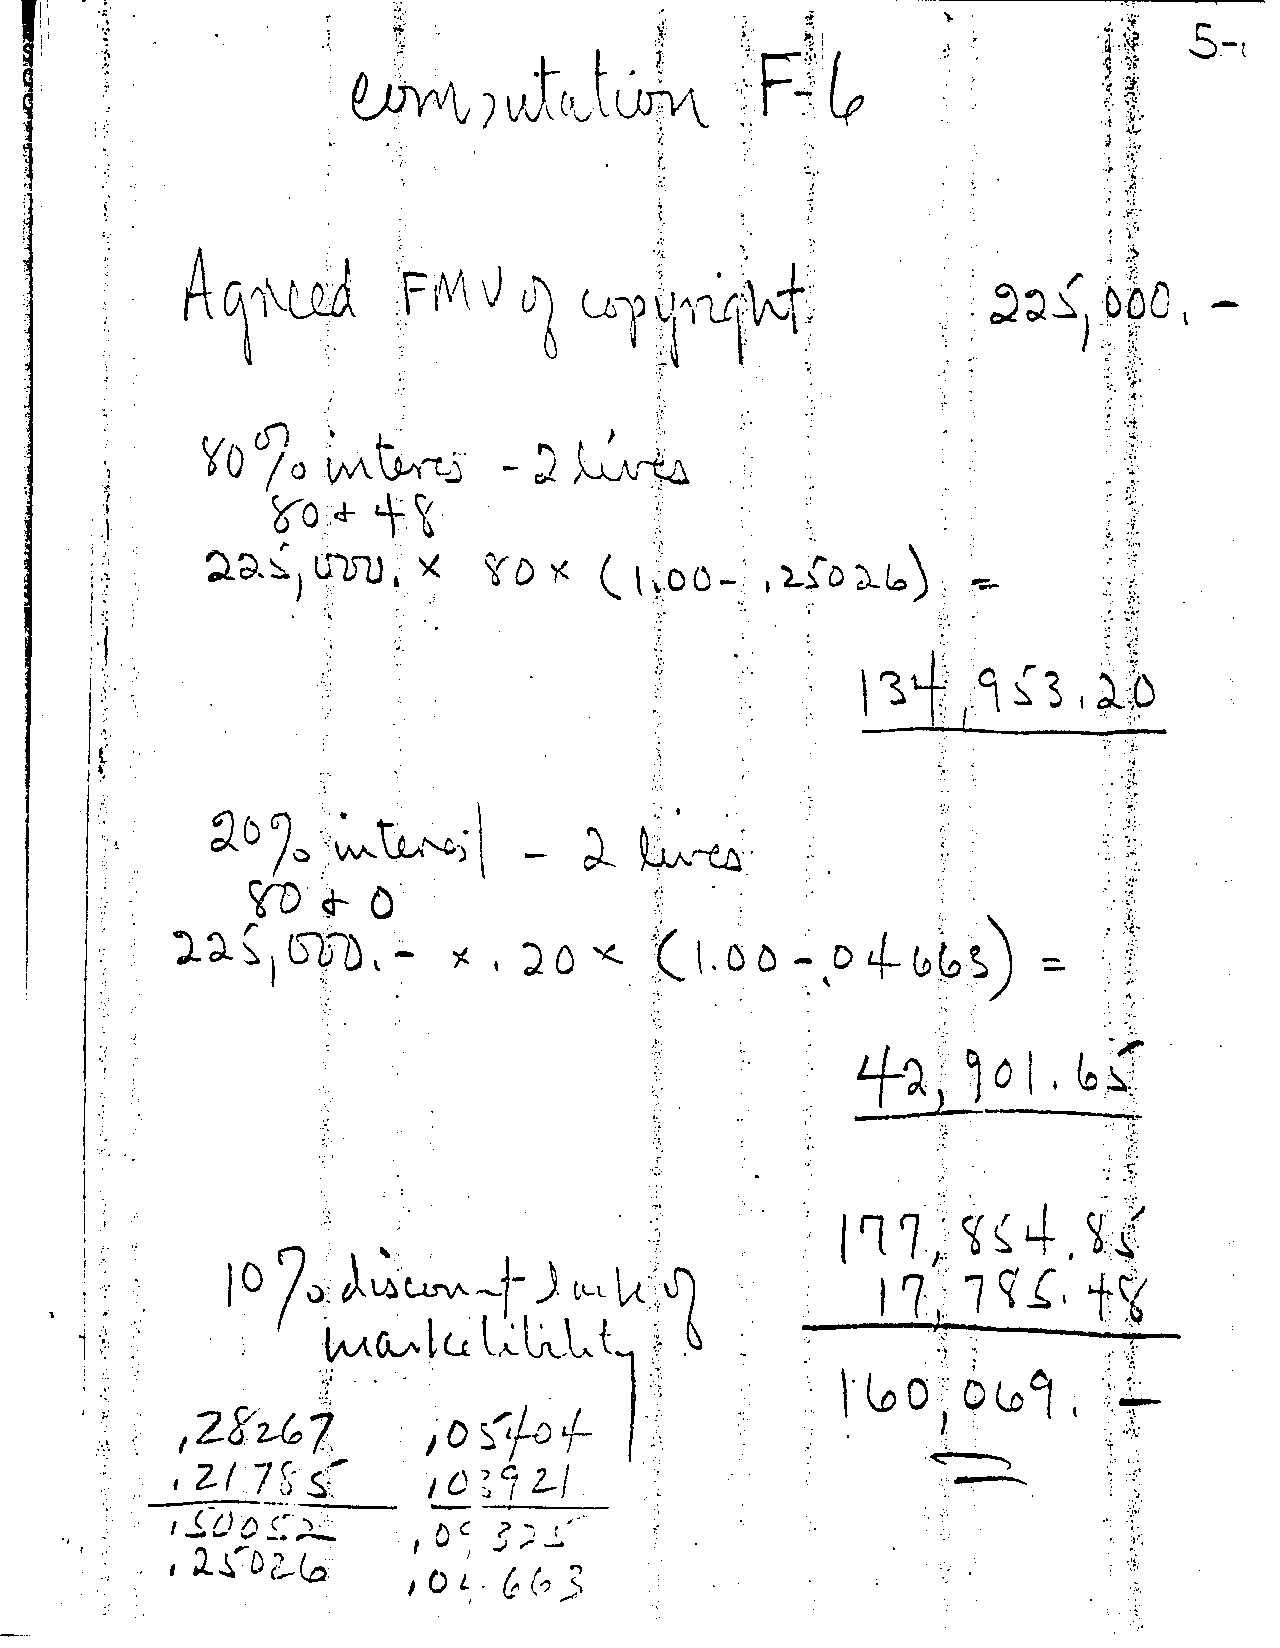 S-1
computation F-6
Agreed FMV of copyright 225,000.-
80% interes - 2 lives
80 + 48
225,000. x 80 x (1.00 - .25026) =
134,953.20
20% interest - 2 lives
80 + 0
225,000.- x .20 x (1.00 - .04663) =
42,901.65
177,854.85
10% discount lack of 17,785.48
marketibility
160,069.-
.28267 .05404
.21785 .03921
.50052 .09325
.25026 .04663